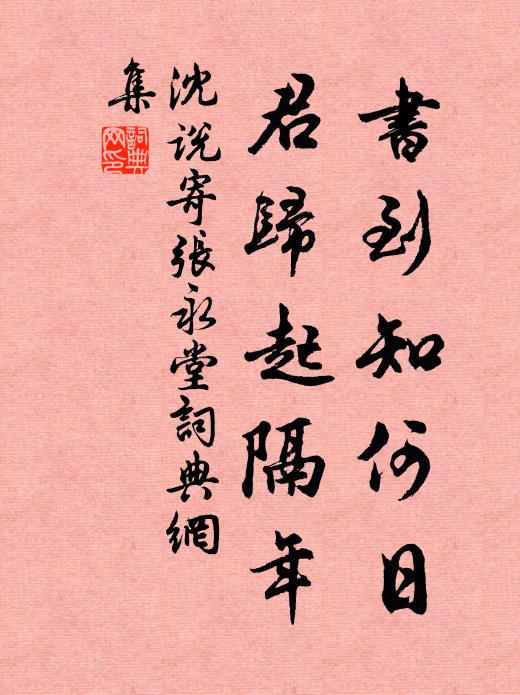 書到知何日
君歸起隔年
沈說寄張永堂詞典網
集
詞典網印